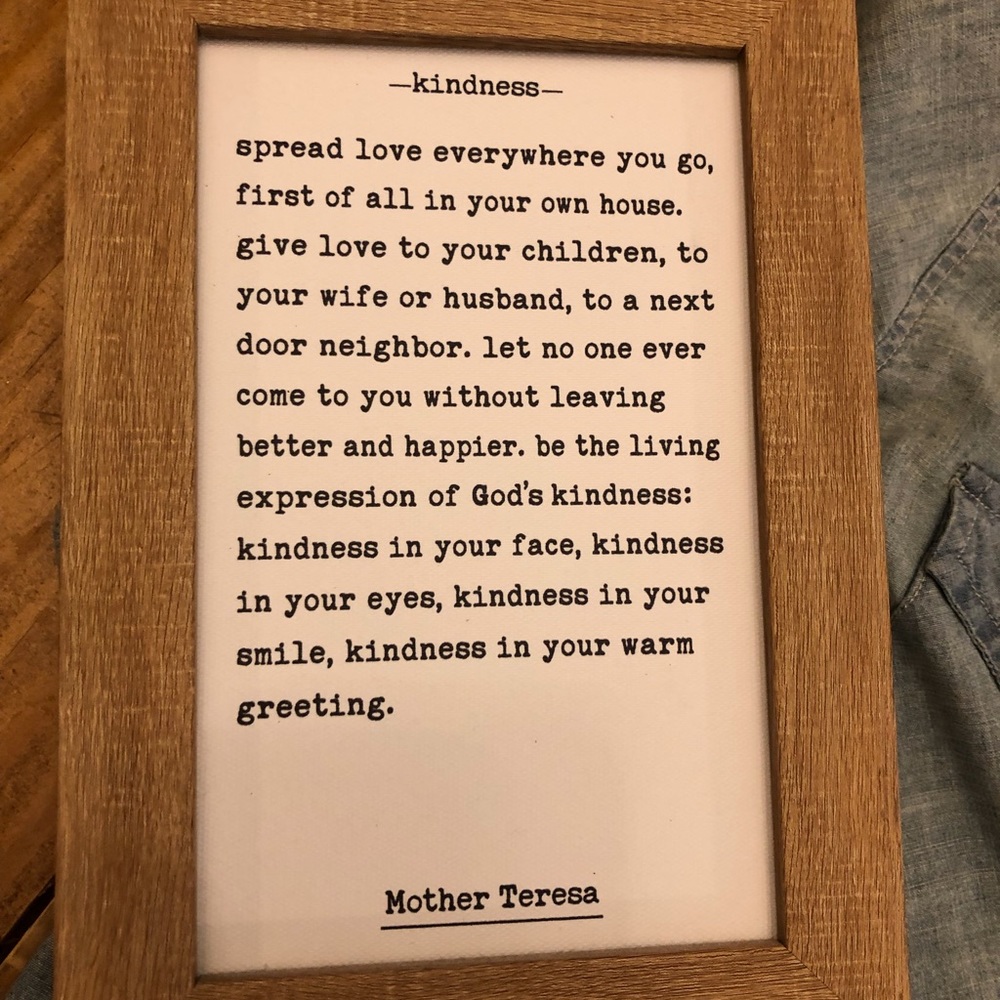 —kindness—
spread love everywhere you go,
first of all in your own house.
give love to your children, to
your wife or husband, to a next
door neighbor. let no one ever
come to you without leaving
better and happier. be the living
expression of God's kindness:
kindness in your face, kindness
in your eyes, kindness in your
smile, kindness in your warm
greeting.
Mother Teresa